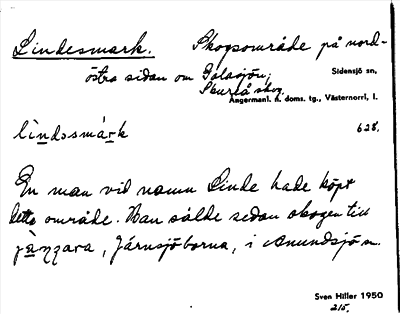 Lindesmark. Skogsområde på nord-
östra sidan om Galasjön,
Sidensjö sn,
Skurså skog.
Ångermanl. n. doms. tg., Västernorrl. l.
628.
En man vid namn Linde hade köpt
detta område. Han sålde sedan skogen till
Järnsjöborna, i Anundsjö sn.
Sven Hiller 1950
2/5.